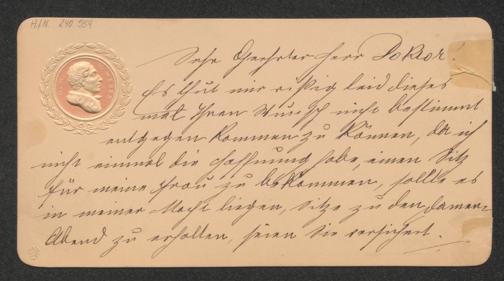 H.I.N. 240 984
Sehr Geehrter Herr Doktor!
Es thut mir  leid dieses
mal Ihren Wunsch nicht bestimmt
entgegen kommen zu können, da ich
nicht einmal die Hoffnung habe, einen Sitz
für meine Frau zu bekommen, sollte es
in meiner Macht liegen, Sitze zu den Damen-
Abend zu erhalten, seien Sie versichert.